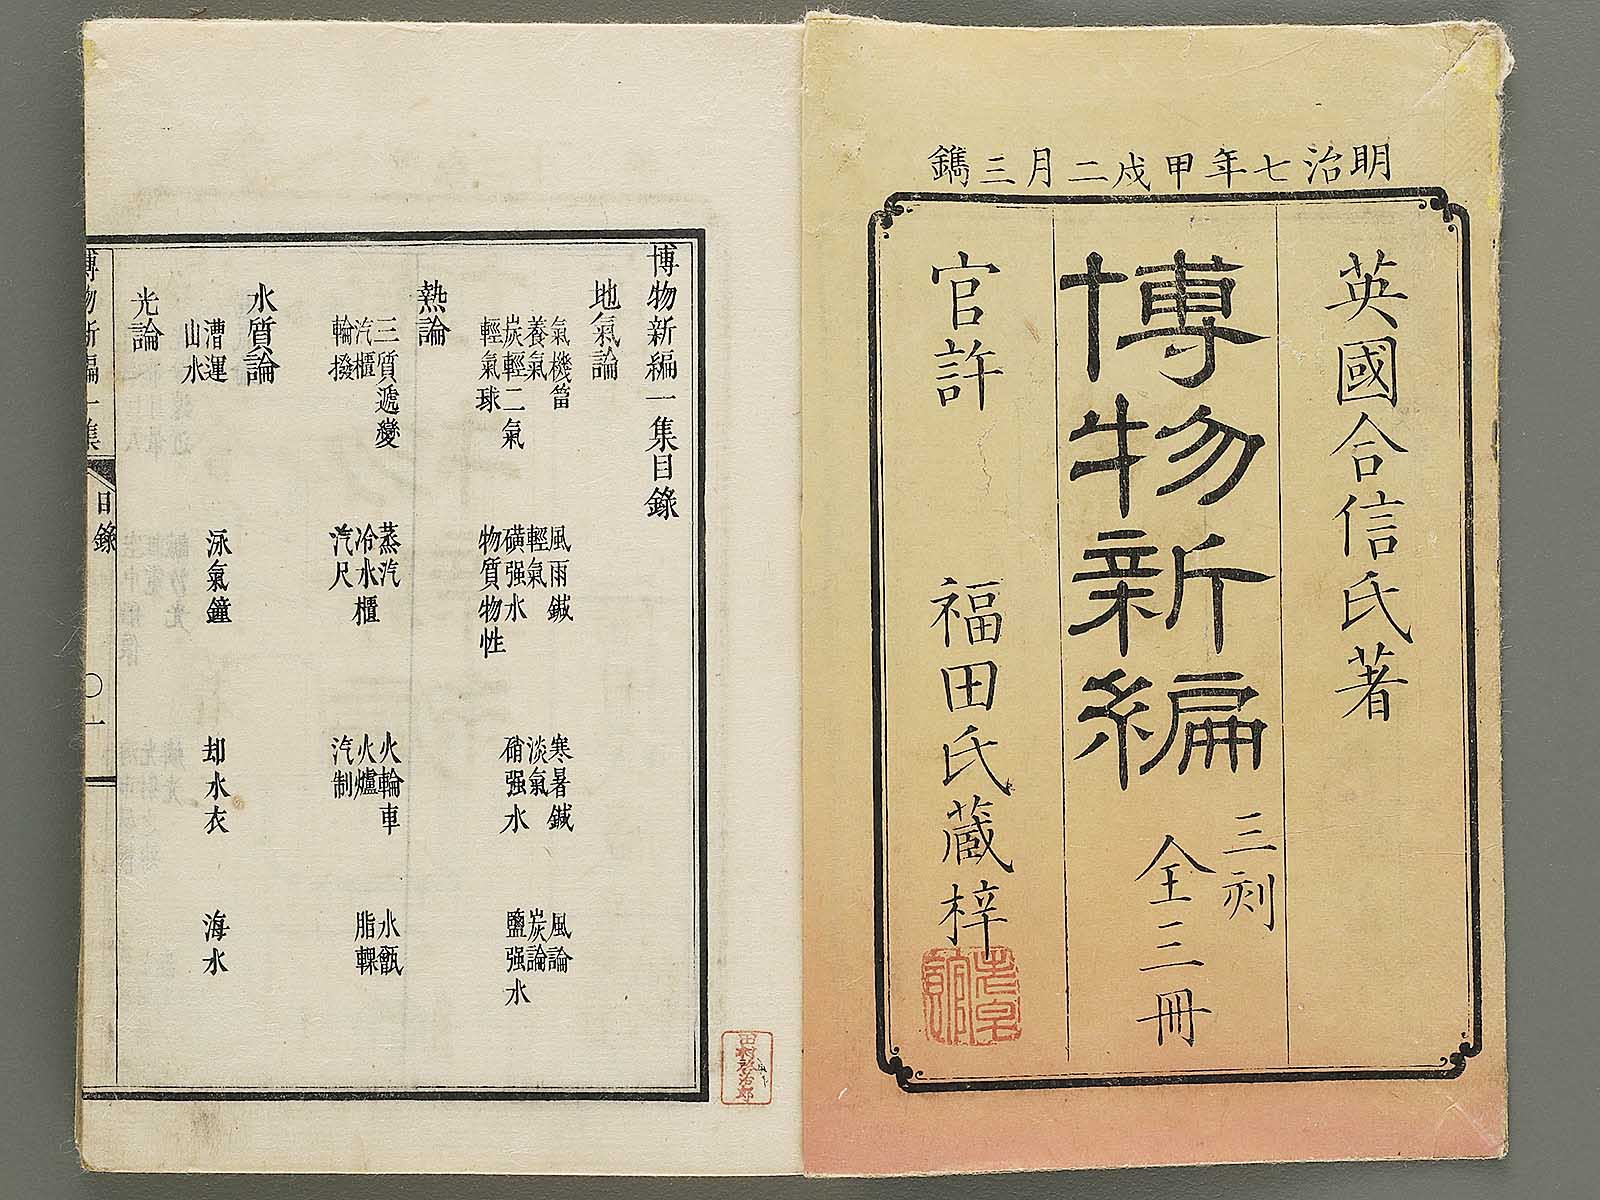 明治七年甲戌二月三鐫
英國合信氏著
博物新編
三刻
全三冊
官許
福田氏蔵梓
博物新編一集目錄
地氣論
氣機筩　風雨鍼　寒暑鍼　風論
養氣　輕氣　淡氣　炭論
炭輕二氣　磺强水　硝强水　鹽强水
輕氣球　物質物性
熱論
三質遞變　蒸汽　火輪車　水甑
汽櫃　冷水櫃　火爐　脂輠
輪撥　汽尺　汽制
水質論
漕運　泳氣鐘　却水衣　海水
山水
光論
博物新編一集　目錄　〇一
田村　治郎